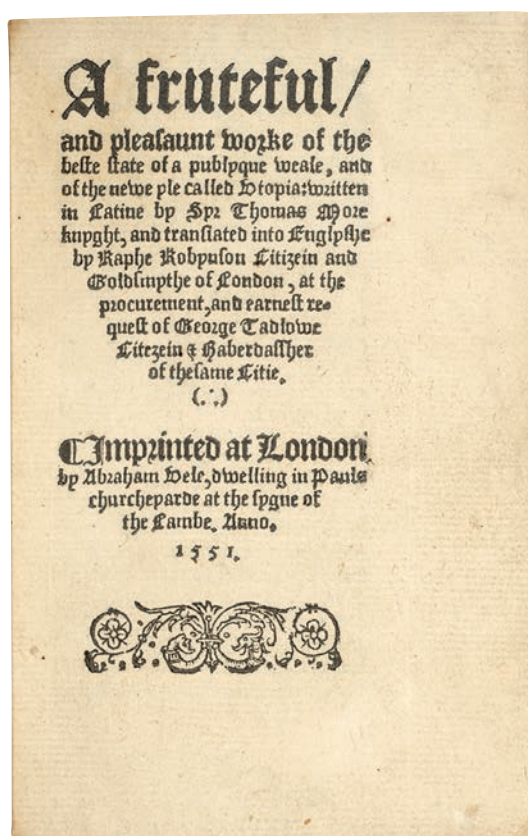 A fruteful/
and pleasaunt worke of the
beste state of a publyque weale, and
of the newe yle called Vtopia: written
in Latine by Syr Thomas More
knyght, and translated into Englyshe
by Raphe Robynson Citizein and
Goldsmythe of London, at the
procurement, and earnest re-
quest of George Tadlowe
Citezein & Haberdassher
of thesame Citie.
(∴)
¶Imprinted at London
by Abraham Vele, dwelling in Pauls
churcheyarde at the sygne of
the Lambe. Anno.
1551.